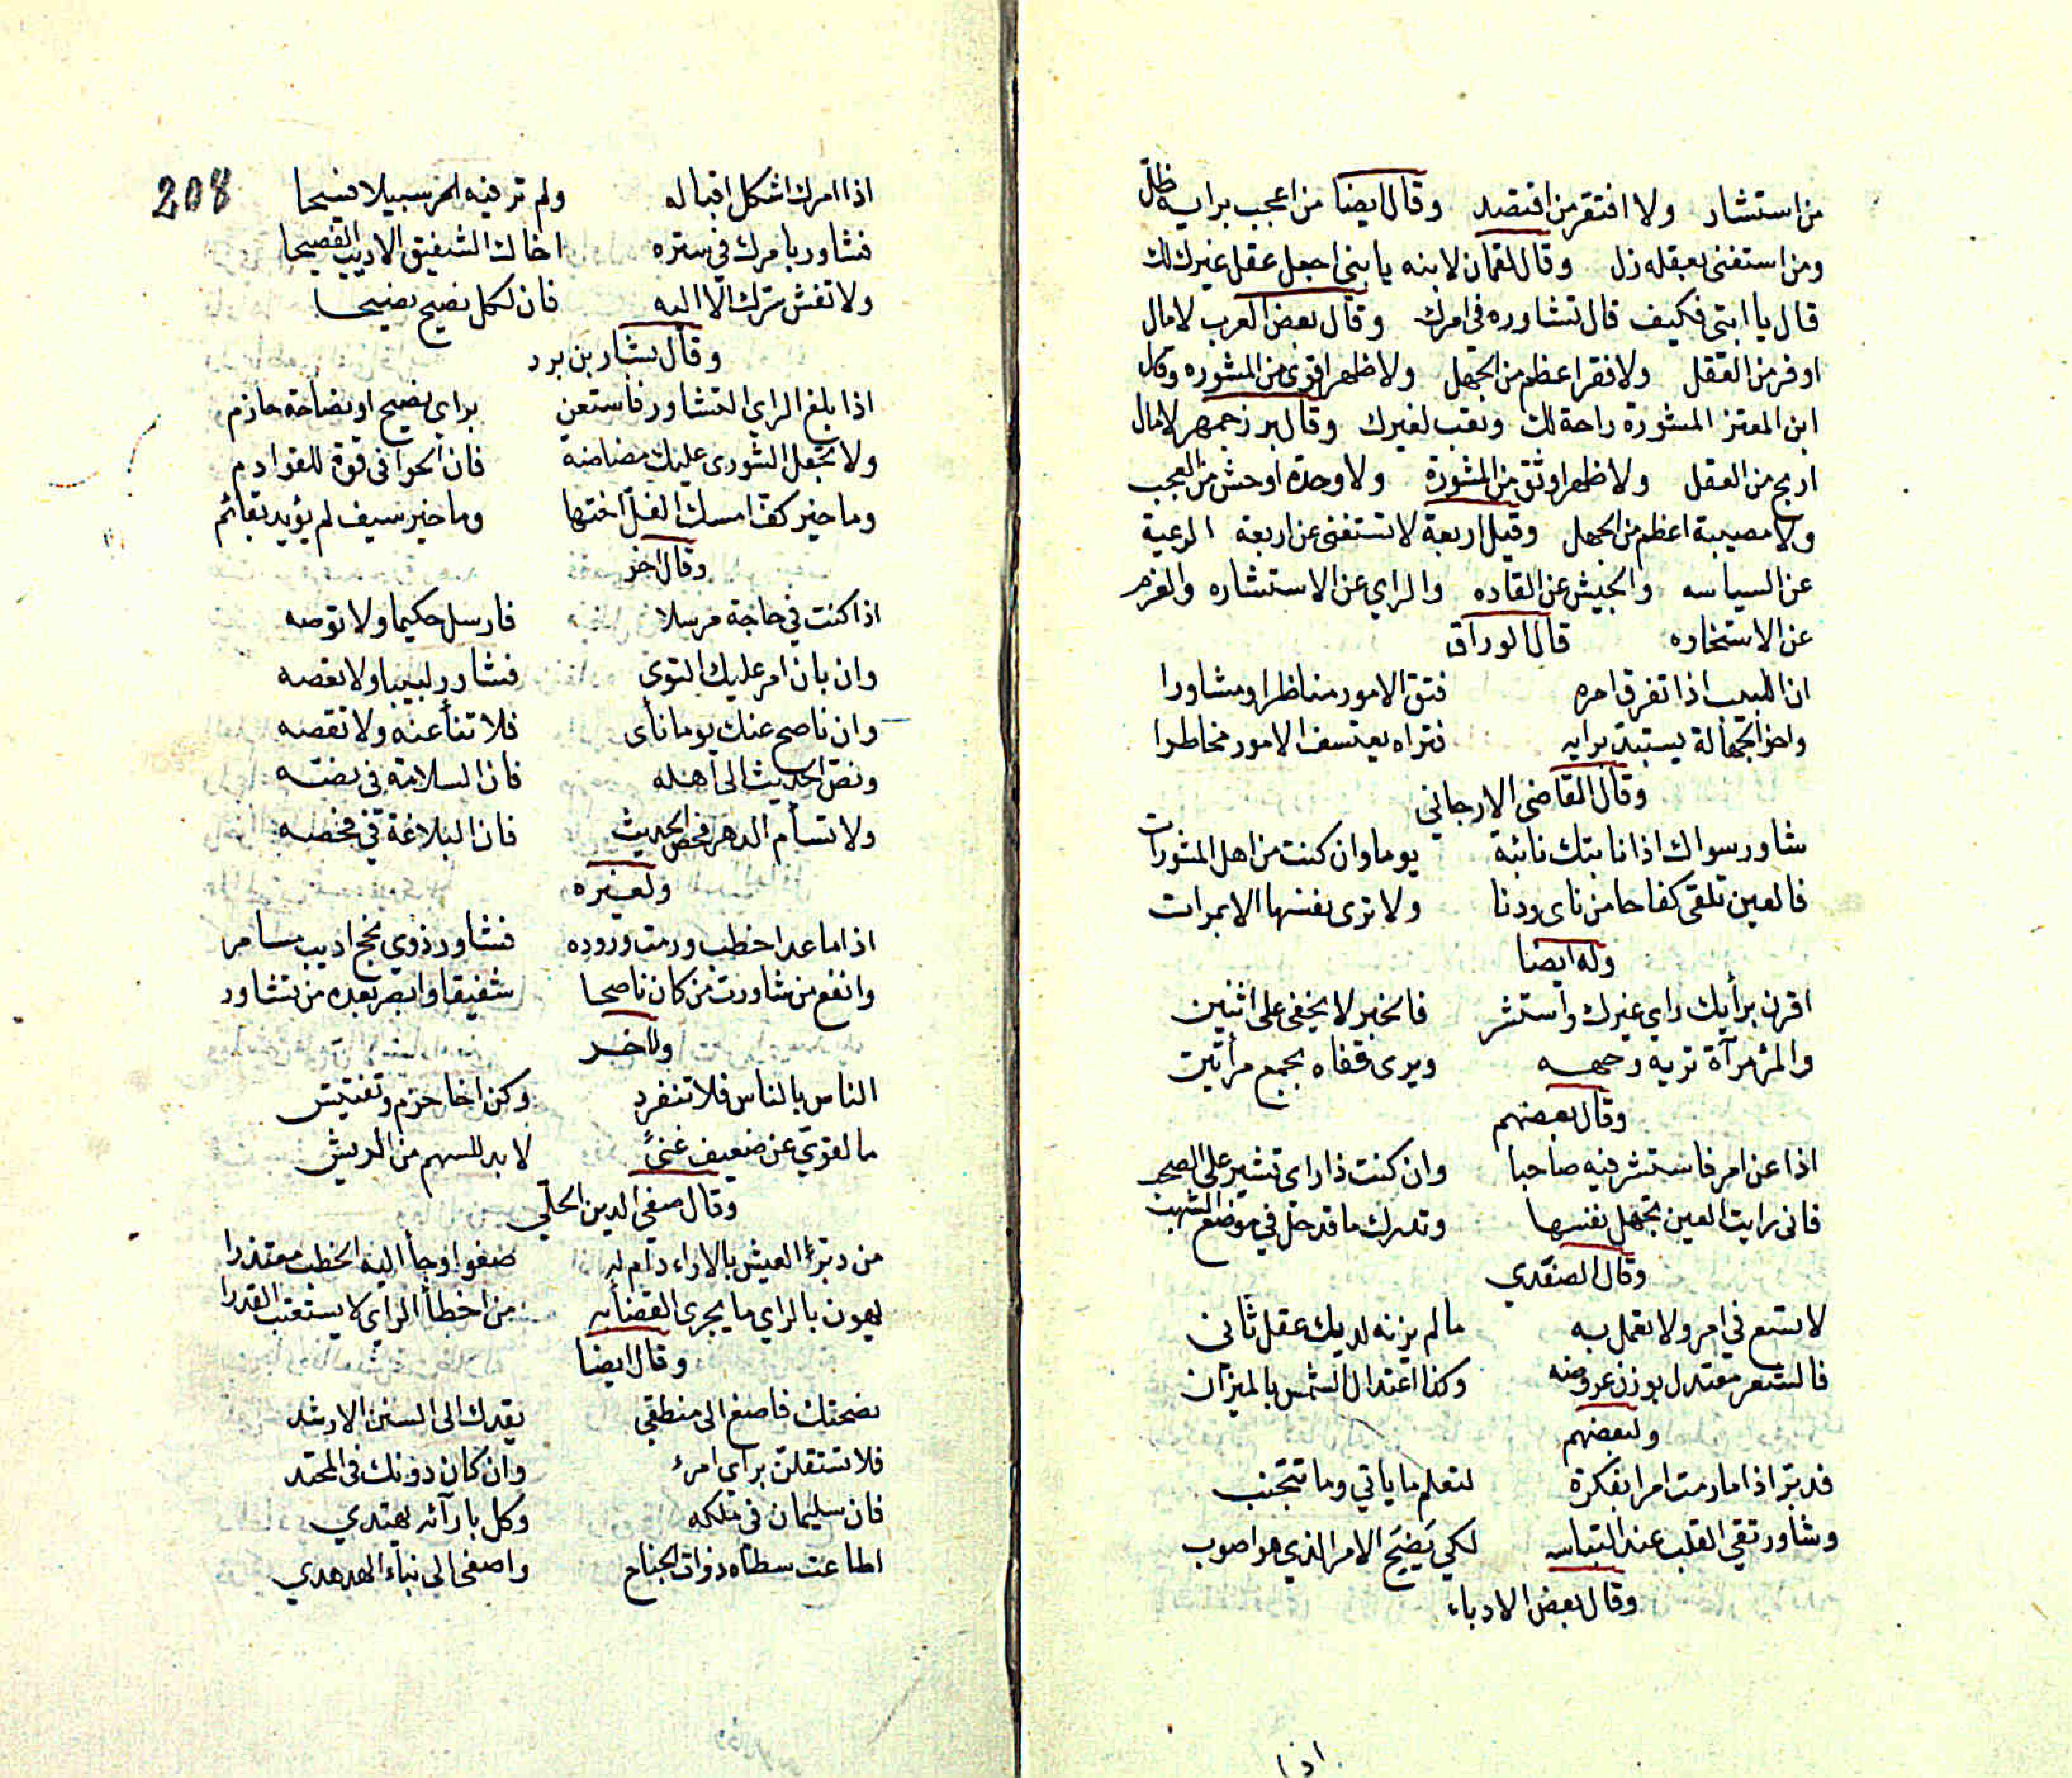 من استشار ولا افتقر من اقتصد وقال ايضا من اعجب برايه ظلّ
ومن استغنى بعقله زل وقال لقمان لابنه يا بني اجعل عقل غيرك لك
قال يا ابتي فكيف قال تشاوره في امرك وقال بعض العرب لا مال
اوفر من العقل ولا فقر اعظم من الجهل ولا ظهر اقوى من المشوره وقال
ابن المعتز المشورة راحة لك وتعب لغيرك وقال بزرجمهر لا مال
اربح من العقل ولا ظهر اوثق من المشورة ولا وحدة اوحش من العجب
ولا مصيبة اعظم من الجهل وقيل اربعة لا تستغنى عن اربعة الرعية
عن السياسه والجيش عن القاده والراي عن الاستشاره والعزم
عن الاستخاره قال الوراق
ان اللبيب اذا تفرق امره فتق الامور مناظرا ومشاورا
واخو الجهالة يستبد برايه فتراه يعتسف الامور مخاطرا
وقال القاضى الارجاني
شاور سواك اذا نابتك نائبة يوما وان كنت من اهل المشورات
فالعين تلقى كفاحا من ناى ودنا ولا ترى نفسها الا بمرات
وله ايضا
اقرن برأيك راي غيرك واستشر فالخبر لا يخفى على اثنين
والمرء مرآة تريه وجهه ويرى قفاه بجمع مرأتين
وقال بعضهم
اذا عن امر فاستشر فيه صاحبا وان كنت ذا راى تشير على الصحب
فانى رايت العين تجهل نفسها وتدرك ما قد حل في موضع الشهب
وقال الصفدي
لا تسع في امر ولا تعمل به ما لم يزنه لديك عقل ثانى
فالشعر معتدل بوزن عروضه وكذا اعتدال الشمس بالميزان
ولبعضهم
فدبّر اذا ما رمت امرا بفكرة لتعلم ما ياتي وما تتجنب
وشاور تقي القلب عند التباسه لكي يَضِحَ الامر الذي هو اصوب
وقال بعض الادباء
اذا
208
اذا امرك اشكل اقباله ولم تر فيه سبيلا فسيحا
فشاور بامرك في ستره اخاك الشفيق الاديب الفصيحا
ولا تفش سرك الّا اليه فان لكل نصيح نصيحا
وقال بشار بن برد
اذا بلغ الراي التشاور فاستعن براي نصيح او نصاحة حازم
ولا تجعل الشورى عليك غضاضة فان الخوافى قوة للقوادم
وما خير كفّ امسك الغلّ اختها وما خير سيف لم يؤيد بقائم
وقال اخر
اذا كنت في حاجة مرسلا فارسل حكيما ولا توصه
وان بان امر عليك التوى فشاور لبيبا ولا تعصه
وان ناصح عنك يوما نأى فلا تنأ عنه ولا تقصه
ونصّ الحديث الى أهله فان السلامة في نصّه
ولا تسأم الدهر فحص الحديث فان البلاغة في فحصه
ولغيره
اذا ما عدا خطب ورمت وروده فشاور ذوي نجح اديب مسامر
وانفع من شاورت من كان ناصحا شفيقا وابصر بعده من تشاور
ولاخر
الناس بالناس فلا تنفرد وكن اخا حزم وتفتيش
ما لقويّ عن ضعيف غنىً لا بد للسهم من الريش
وقال صفي الدين الحلّي
من دبّر العيش بالاراء دام له صفوا وجأ اليه الخطب معتذرا
يهون بالراي ما يجرى القضأ به من اخطأ الرأي لا يستعتب القدرا
وقال ايضا
نصحتك فاصغ الى منطقي يقدك الى السنن الارشد
فلا تستقلنّ براي امرء وان كان دونك في المحتد
فان سليمان في ملكه وكل بآرائه يهتدي
اطاعت سطاه ذوات الجناح واصغى الى نباء الهدهدي